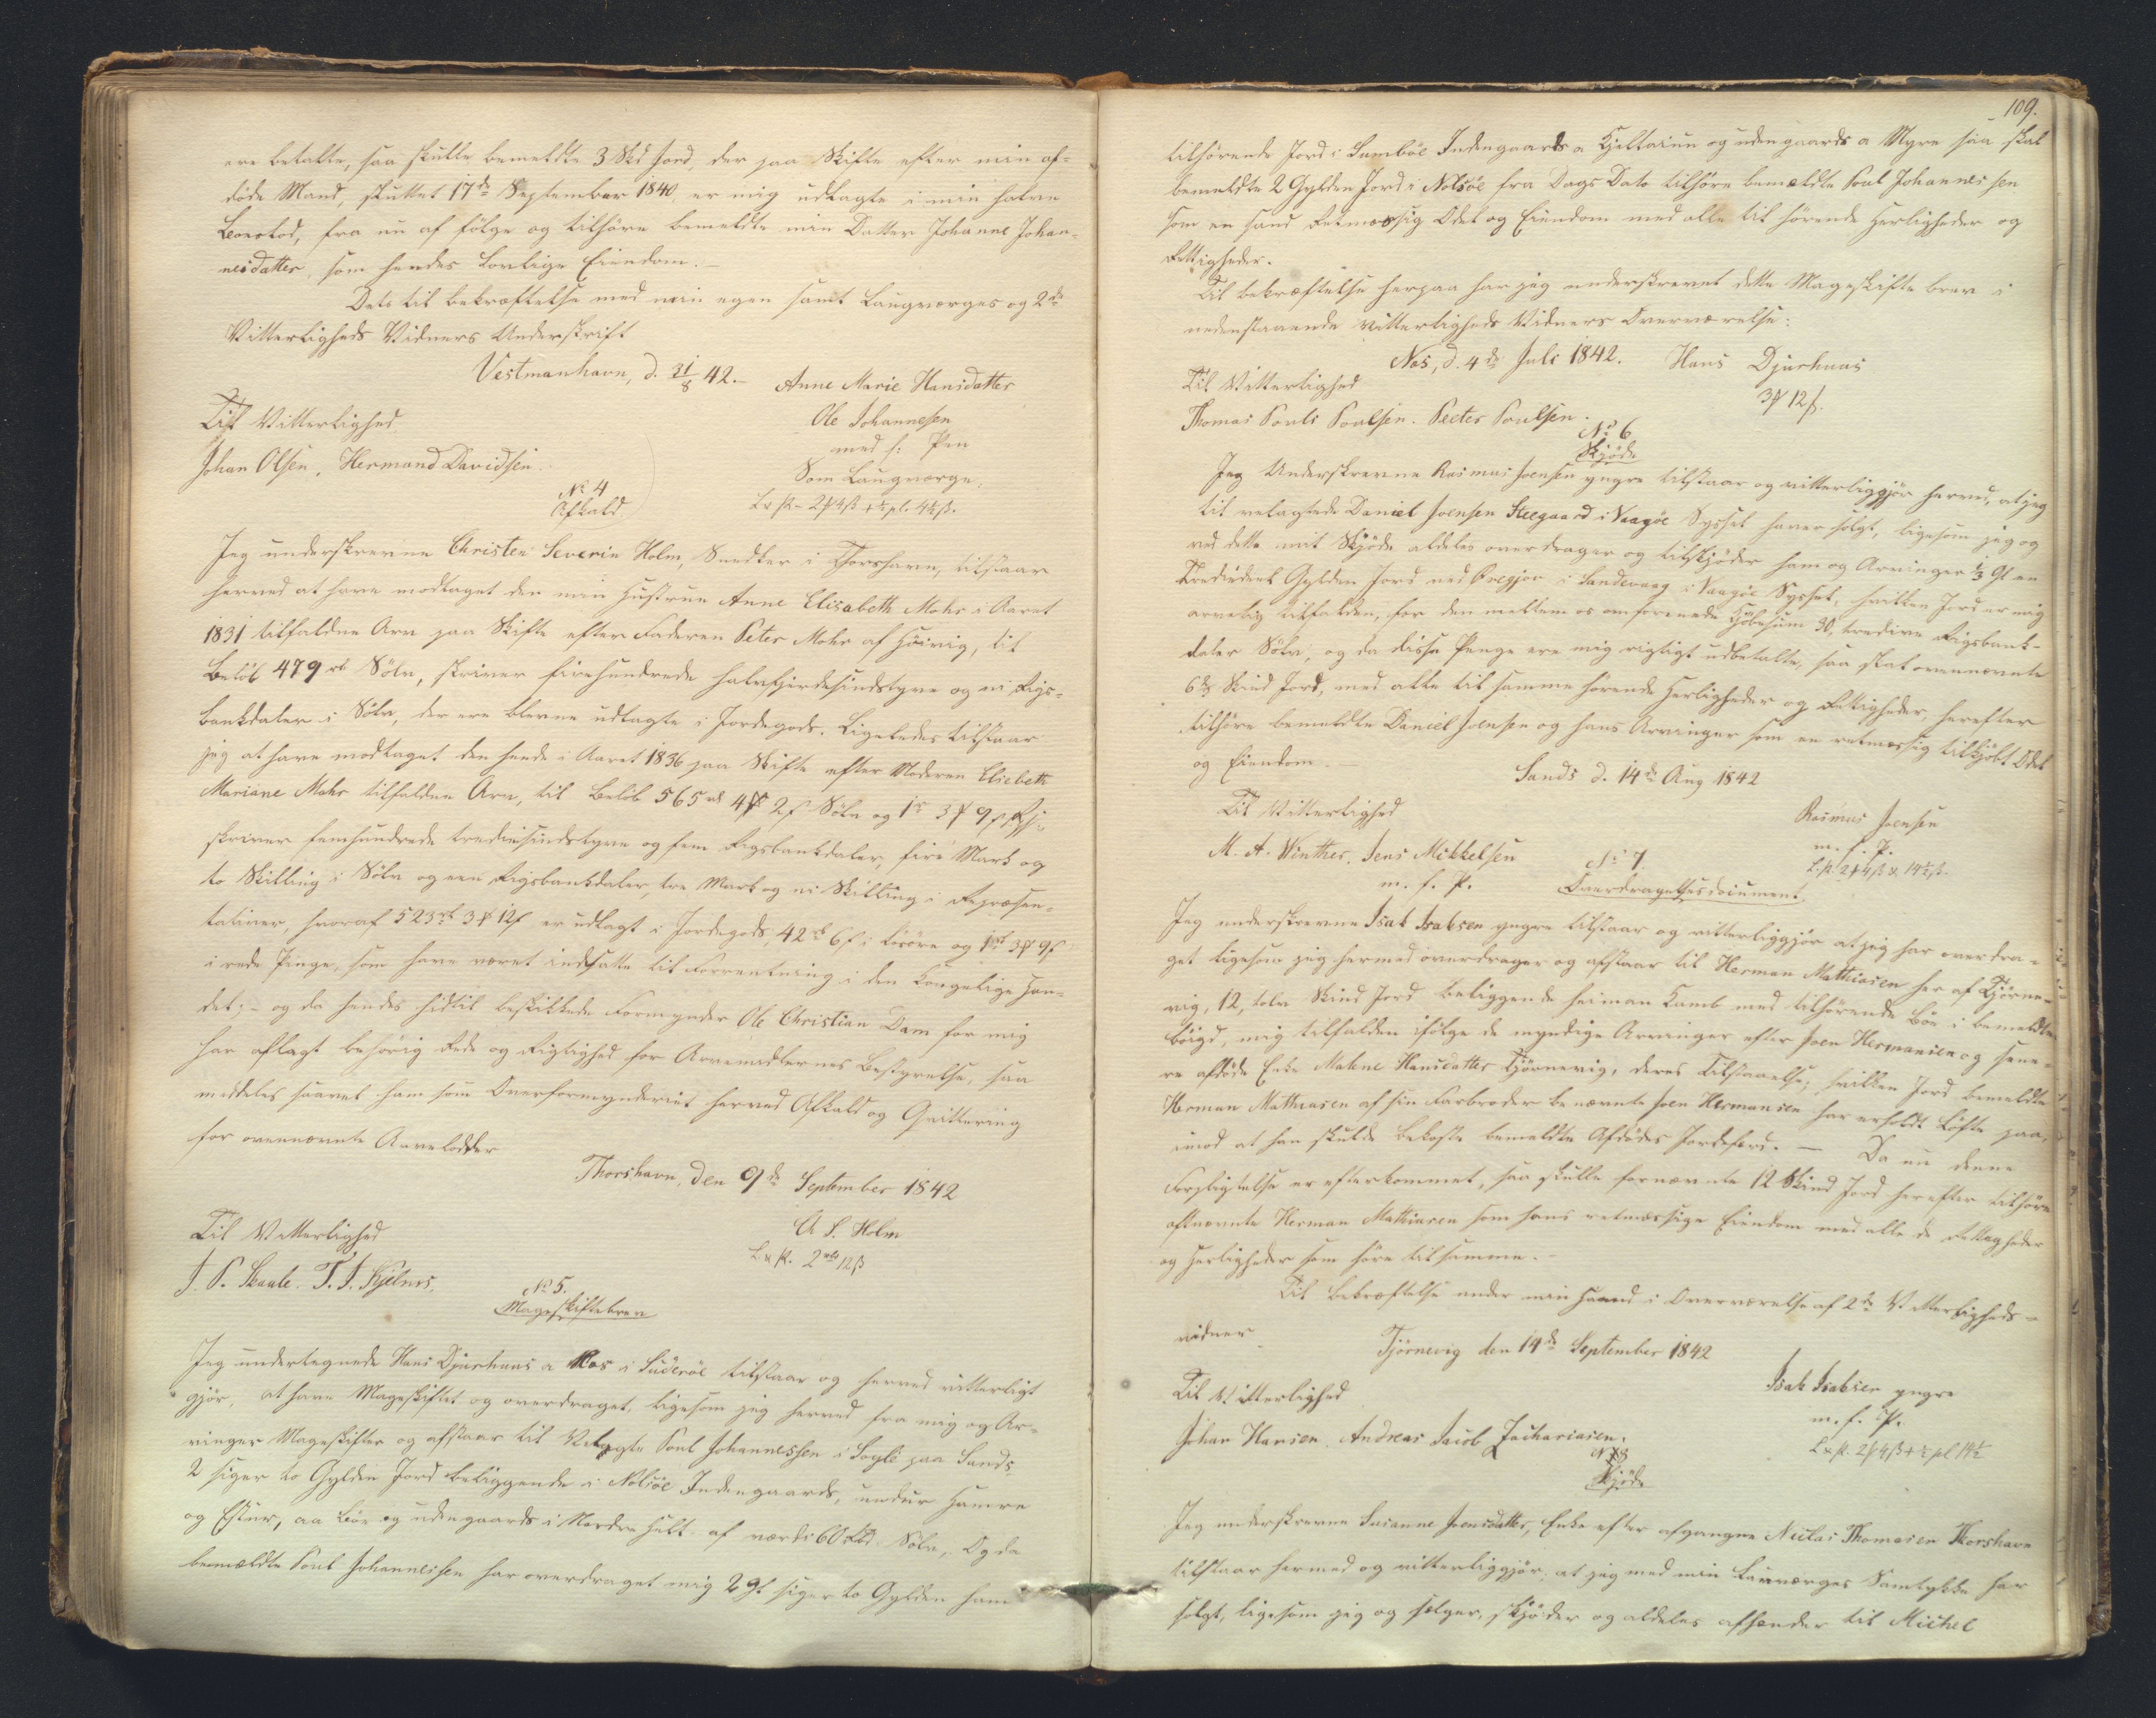 ere betalte, saa skulle bemeldte 3 Skd Jord, der paa Skifte efter min af-
døde Mand, sluttet 17de September 1840, er mig udlagte i min halve
Boeslod, fra nu af følge og tilhøre bemeldte min Datter Johanne Johan-
nesdatter, som hendes lovlige Eiendom.-
Dets til bekræftelse med min egen samt Laugværges og 2de
Vitterligheds Vidners Underskrift
Vestmanhavn, d. 31/8 42.-
Anne Marie Hansdatter
Til Vitterlighed
Ole Johannesen
med f. Pen
Johan Olsen, Hermand Davidsen.
Som Laugværge.
No 4
Afkald
Jeg underskrevne Christen Severin Holm, Snedker i Thorshavn, tilstaar
herved at have modtaget den min Hustrue Anne Elisabeth Mohr i Aaret
1831 tilfaldne Arv paa Skifte efter Faderen Peter Mohr af Høivig, til
Beløb 479 rb Sølv, skriver firehundrede halvfjerdesindstyve og ni Rigs-
bankdaler i Sølv, der ere blevne udlagte i Jordegods. Ligeledes tilstaar
jeg at have modtaget den hende i Aaret 1836 paa Skifte efter Moderen Elsebeth
Mariane Mohr tilfaldne Arv, til Beløb 565 rb 4 2 Sølv og 1 3 9
skriver femhundrede tredsindstyve og fem Rigsbankdaler, fire Mark og
to Skilling i Sølv og een Rigsbankdaler, tre Mark og ni Skilling i Repræsen-
tativer, hvoraf 523 rb 3 12 er udlagt i Jordegods, 42 rb 6 i Løsøre og 1 rb 3 9
i rede Penge, som have været indsatte til Forrentning i den Kongelige Han-
del; - og da hendes hidtil beskikkede Formynder Ole Christian Dam for mig
har aflagt behørig Rede og Rigtighed for Arvemidlernes Bestyrelse, saa
meddeles saavel ham som Overformynderiet herved Afkald og Qvittering
for ovennævnte Arvelodder
Thorshavn, den 9de September 1842
Til Vitterlighed
C S. Holm
No 5.
Mageskiftebrev
Jeg undertegnede Hans Djurhuus a Nes i Suderøe tilstaar og herved vitterligt
gjør, at have Mageskiftet og overdraget, ligesom jeg herved fra mig og Ar-
vinger Mageskifter og afstaar til Velagte Poul Johannessen i paa Sands,
2 siger to Gylden Jord beliggende i Nolsøe Indengaards, undur Hamre
og aa Bøe og udengaards i Nordre Helt af værdi 60 rbd. Sølv, Og da
bemældte Poul Johannessen har overdraget mig 2 Gl siger to Gylden ham
109.
tilhørende Jord i Sumbøe Indengaards a og udengaards a Myre saa skal
bemeldte 2 Gylden Jord i Nolsøe fra Dags Dato tilhøre bemældte Poul Johannes sen
som en sand Retmæssig Odel og Eiendom med alle til hørende Herligheder og
Rettigheder.
Til bekræftelse herpaa har jeg underskrevet dette Mageskifte brev i
nedenstaaende Vitterligheds Vidners Overværelse:
Nes, d. 4de Juli 1842.
Hans Djurhuus
Til Vitterlighed
Thomas Pouls Poulsen. Peeter Poulsen.
No 6
Skjøde
Jeg Underskrevne Rasmus Joensen yngre tilstaar og vitterliggjør herved, at jeg
til velagtede Daniel Joensen Steegaard i Vaagøe Syssel haver solgt, ligesom jeg og
ved dette mit Skjøde aldeles overdrager og tilskjøder ham og Arvinger 1/3 Gl en
Trediedeel Gylden Jord ved i Sandevaag i Vaagøe Syssel, hvilken Jord er mig
arvelig tilfalden, for den mellem os omforenede Kjøbesum 30, tredive Rigsbank-
daler Sølv, og da disse Penge ere mig rigtigt udbetalte, saa skal ovennævnte
6 2/3 Skind Jord, med alle til samme hørende Herligheder og Rettigheder, herefter
tilhøre bemeldte Daniel Joensen og hans Arvinger som en retmæssig tilkjøbt Odel
og Eiendom.-
Sands d. 14de Aug 1842
Til Vitterlighed
Rasmus Joensen
m. f. P.
M. A. Winther. Jens Mikkelsen
m. f. P.
No 7
Overdragelsesdocument.
Jeg underskrevne Isak Isaksen yngre tilstaar og vitterliggjør at jeg har overdra-
get ligesom jeg hermed overdrager og afstaar til Herman Mathiasen her af Tjørne-
vig, 12, tolv Skind Jord beliggende heiman Kamb med tilhørende Bøe i bemeldte
bøigd, mig tilfalden ifølge de myndige Arvinger efter Joen Hermansen og sene-
re afdøde Enke Malene Hansdatter Tjørnevig, deres Tilstaaelse; hvilken Jord bemeldte
Herman Mathiasen af sin Farbroder benævnte Joen Hermansen har erholdt Løfte paa,
imod at han skulde bekoste bemeldte Afdødes Jordefærd. - Da nu denne
Forpligtelse er efterkommet, saa skulle fornævnte 12 Skind Jord herefter tilhøre
oftnævnte Herman Mathiasen som hans retmæssige Eiendom med alle de Rettigheder
og Herligheder som høre til samme.-
Til bekræftelse under min Haand i Overværelse af 2de Vitterligheds-
vidner
Tjørnevig den 14de September 1842
Til Vitterlighed
Isak Isaksen yngre
m. f. P.
Johan Hansen. Andreas Jacob Zachariasen.
No 8
Skjøde
Jeg underskrevne Susanne Joensdatter, Enke efter afgangne Niclas Thomasen Thorshavn
tilstaar hermed og vitterliggjør, at jeg med min Lauværges Samtykke har
solgt, ligesom jeg og sælger, skjøder og aldeles afhænder til Michel